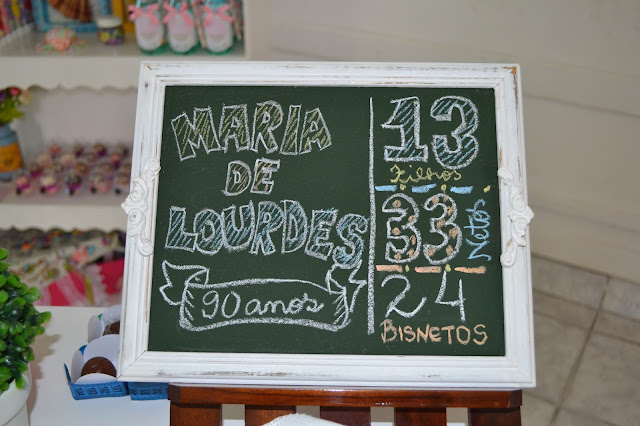 MARIA
DE
LOURDES
90 anos
13
Filhos
33
Netos
24
BISNETOS